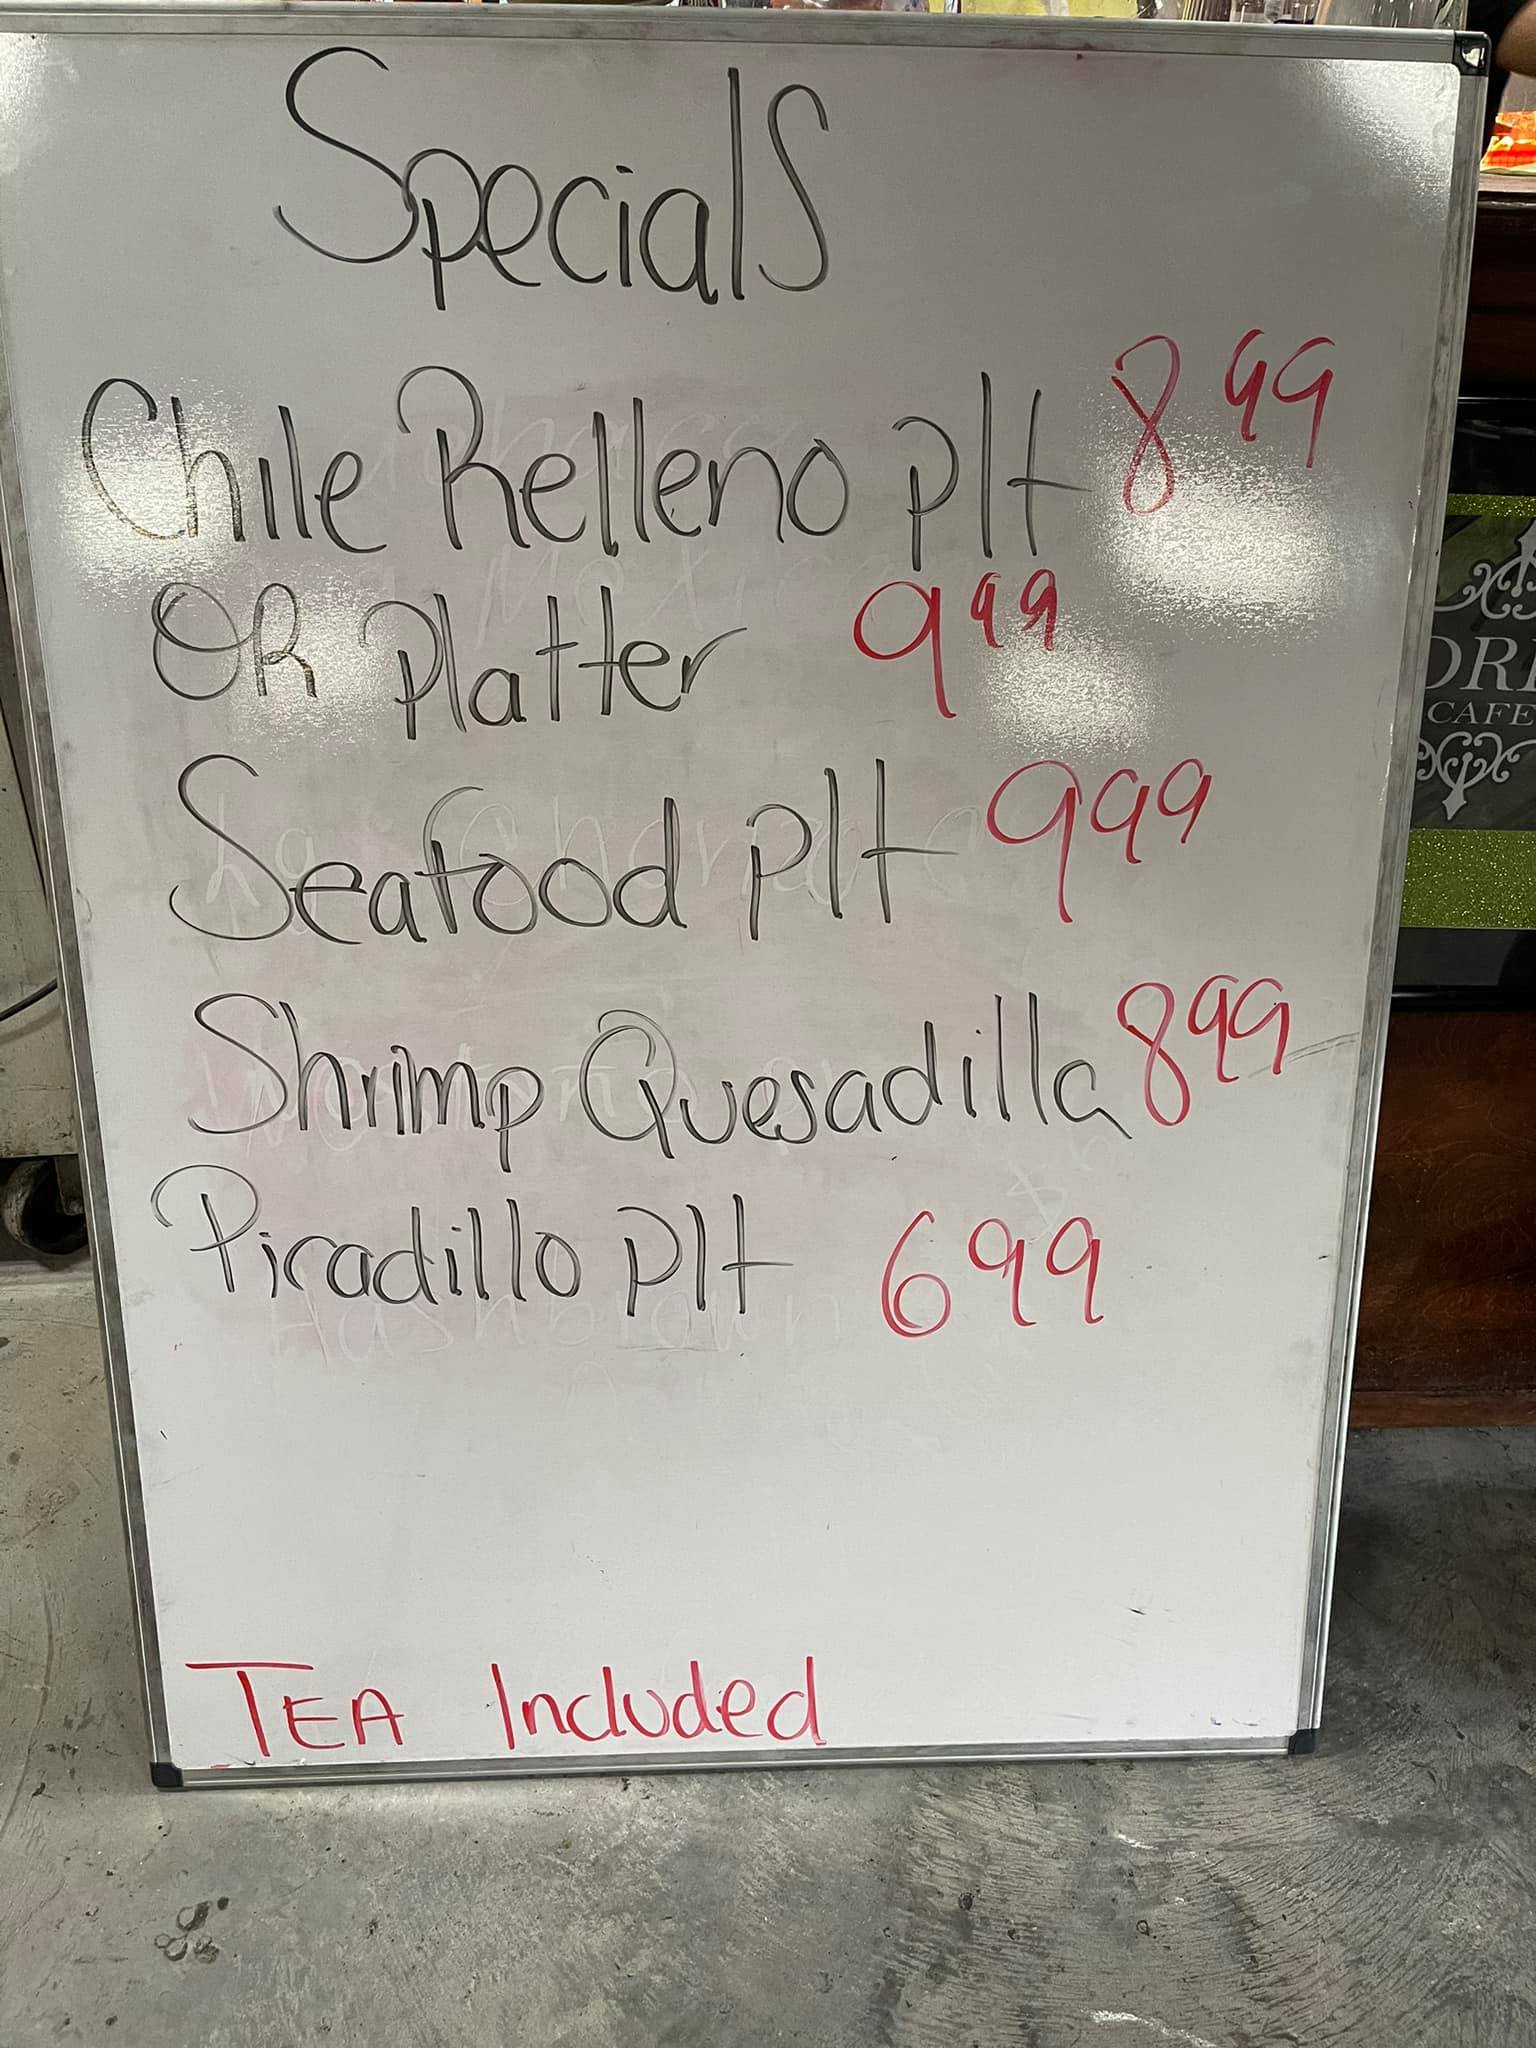 Specials
Chile Relleno Plt 8 99
OR Platter 9 99
Seafood Plt 9 99
Shrimp Quesadilla 8 99
Picadillo Plt 6 99
TEA Included
CAFE